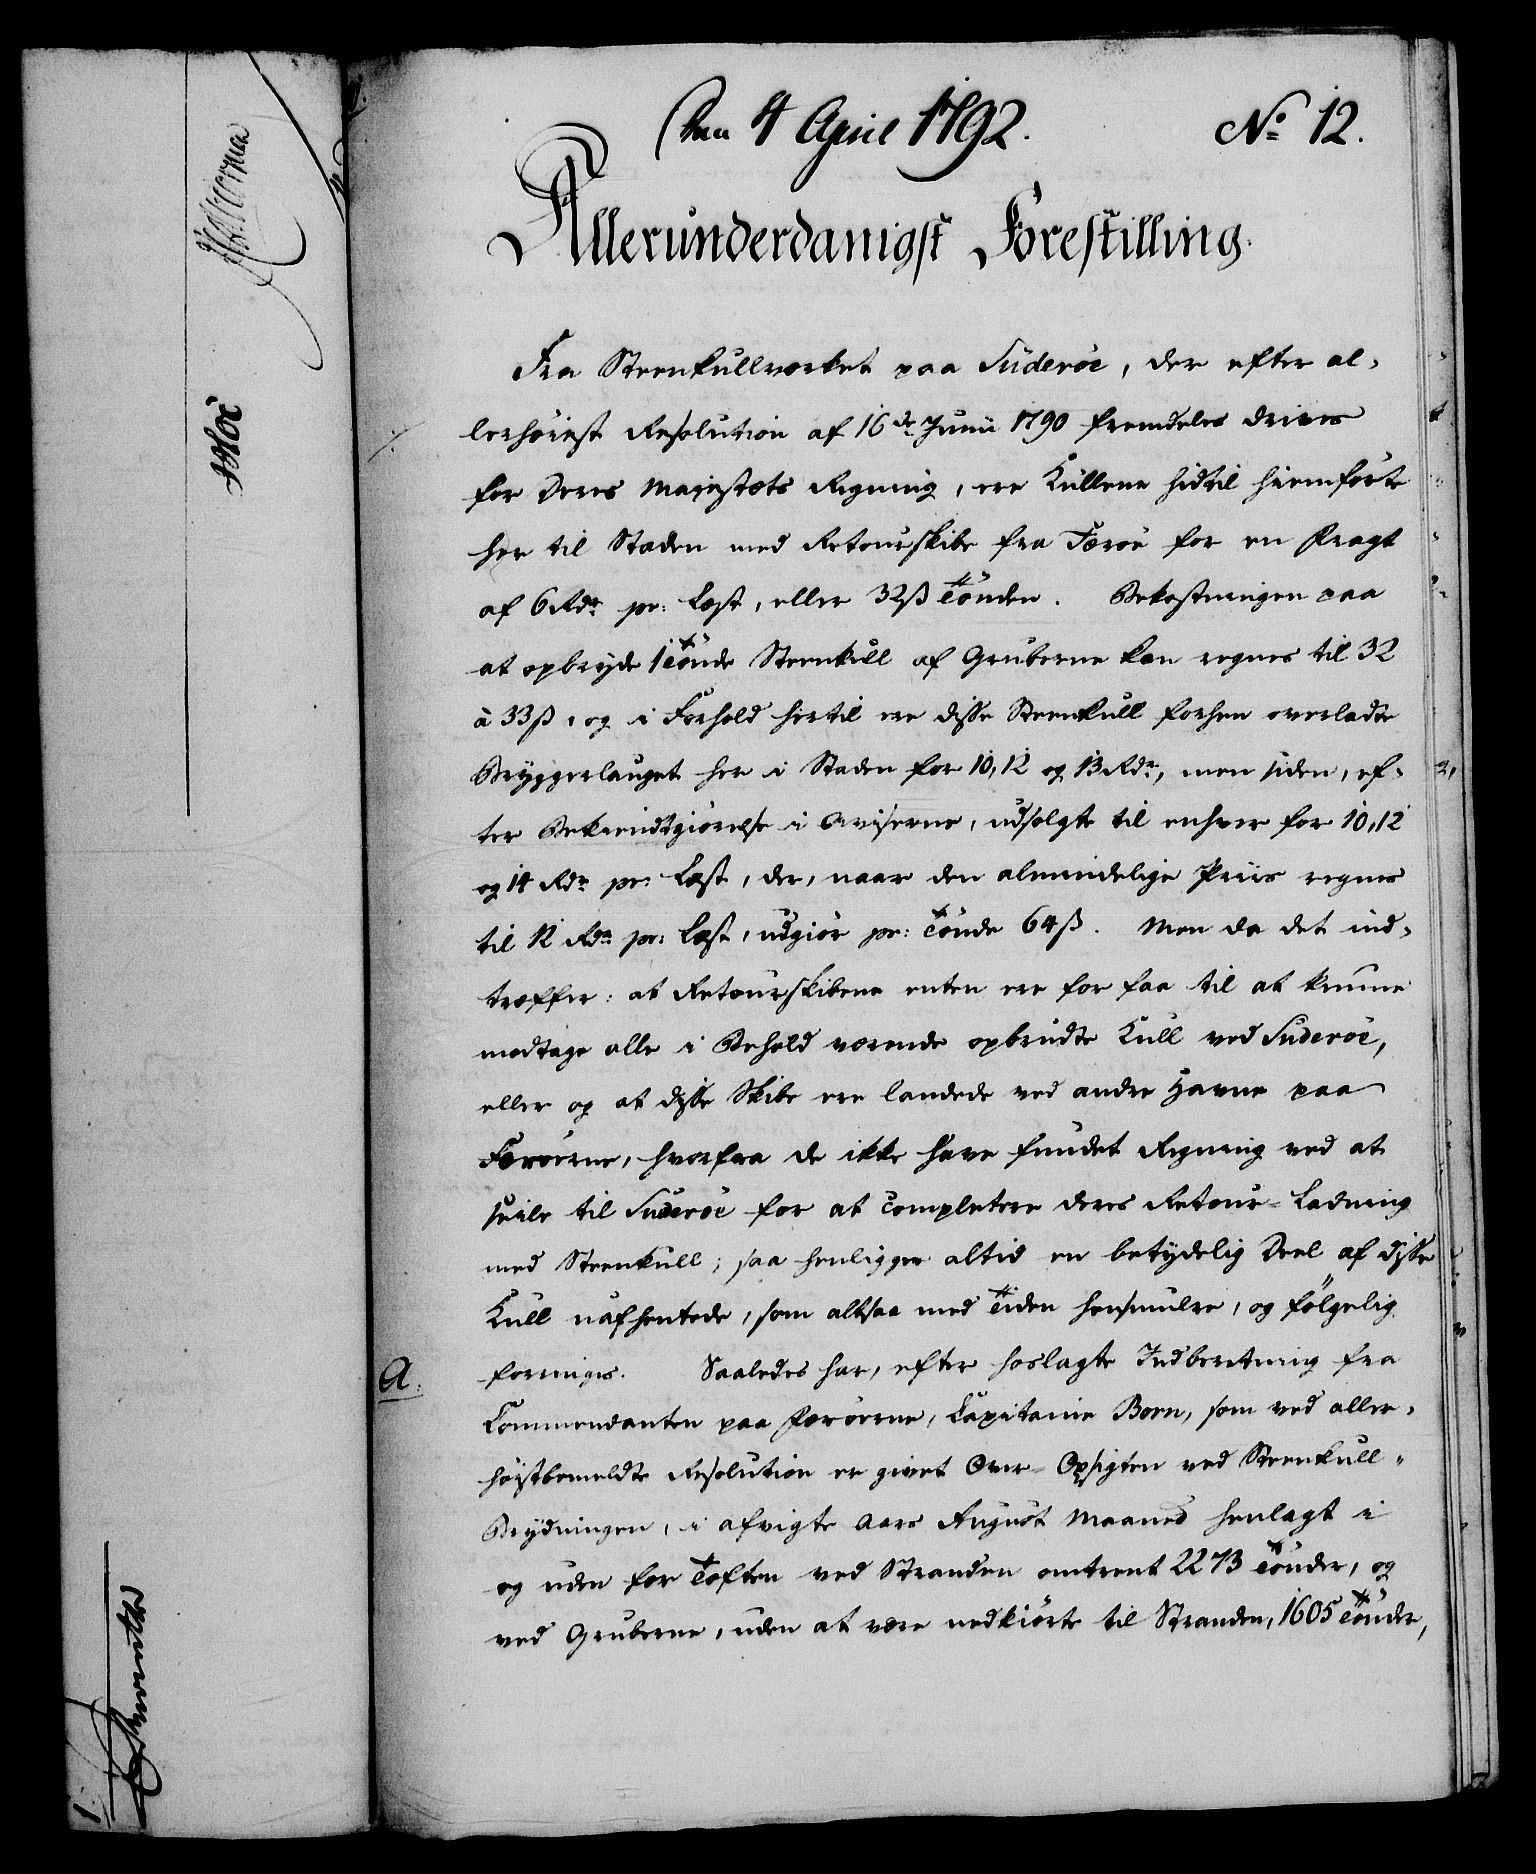 Den 4 April 1792. No 12.
Allerunderdanigst Forestilling.
Fra Steenkullværket paa Süderöe, der efter al-
lerhöiest Resolution af 16de Junii 1790 fremdeles drives
for Deres Majestæts Regning, ere Kullene hidtil hiemförte
her til Staden med Retourskibe fra Færöe for en Fragt
af 6 Rdr pr: Læst, eller 32 ß Tönden. Bekostningen paa
at opbryde 1 Tönde Steenkull af Gruberne kan regnes til 32
à 33 ß, og i Forhold hertil ere disse Steenkull forhen overladte
Bryggerlauget her i Staden for 10, 12 og 13 Rdr, men siden, ef-
ter Bekiendtgiörelse i Aviserne, udsolgte til enhver for 10, 12
og 14 Rdr pr: Læst, der, naar den almindelige Priis regnes
til 12 Rdr pr: Læst, udgiör pr: Tönde 64 ß. Men da det ind-
træffer: at Retourskibene enten ere for faa til at kunne
modtage alle i Behold værende opbrudte Kull ved Suderöe,
eller og at disse Skibe ere landede ved andre Havne paa
Færöerne, hvorfra de ikke have fundet Regning ved at
seile til Suderöe for at completere deres Retour-Ladning
med Steenkull; saa henligger altid en betydelig Deel af disse
Kull uafhentede, som altsaa med Tiden hensmulre, og fölgelig
forringes. Saaledes har, efter hoslagte Indberetning fra
A.
Commendanten paa Færöerne, Capitaine Born, som ved aller-
höistbemeldte Resolution er givet Over-Opsigten ved Steenkull-
Brydningen, i afvigte Aars August Maaned henlagt i
og uden for Toften ved Stranden omtrent 2273 Tönder, og
ved Gruberne, uden at være nedkiörte til Stranden, 1605 Tönder,